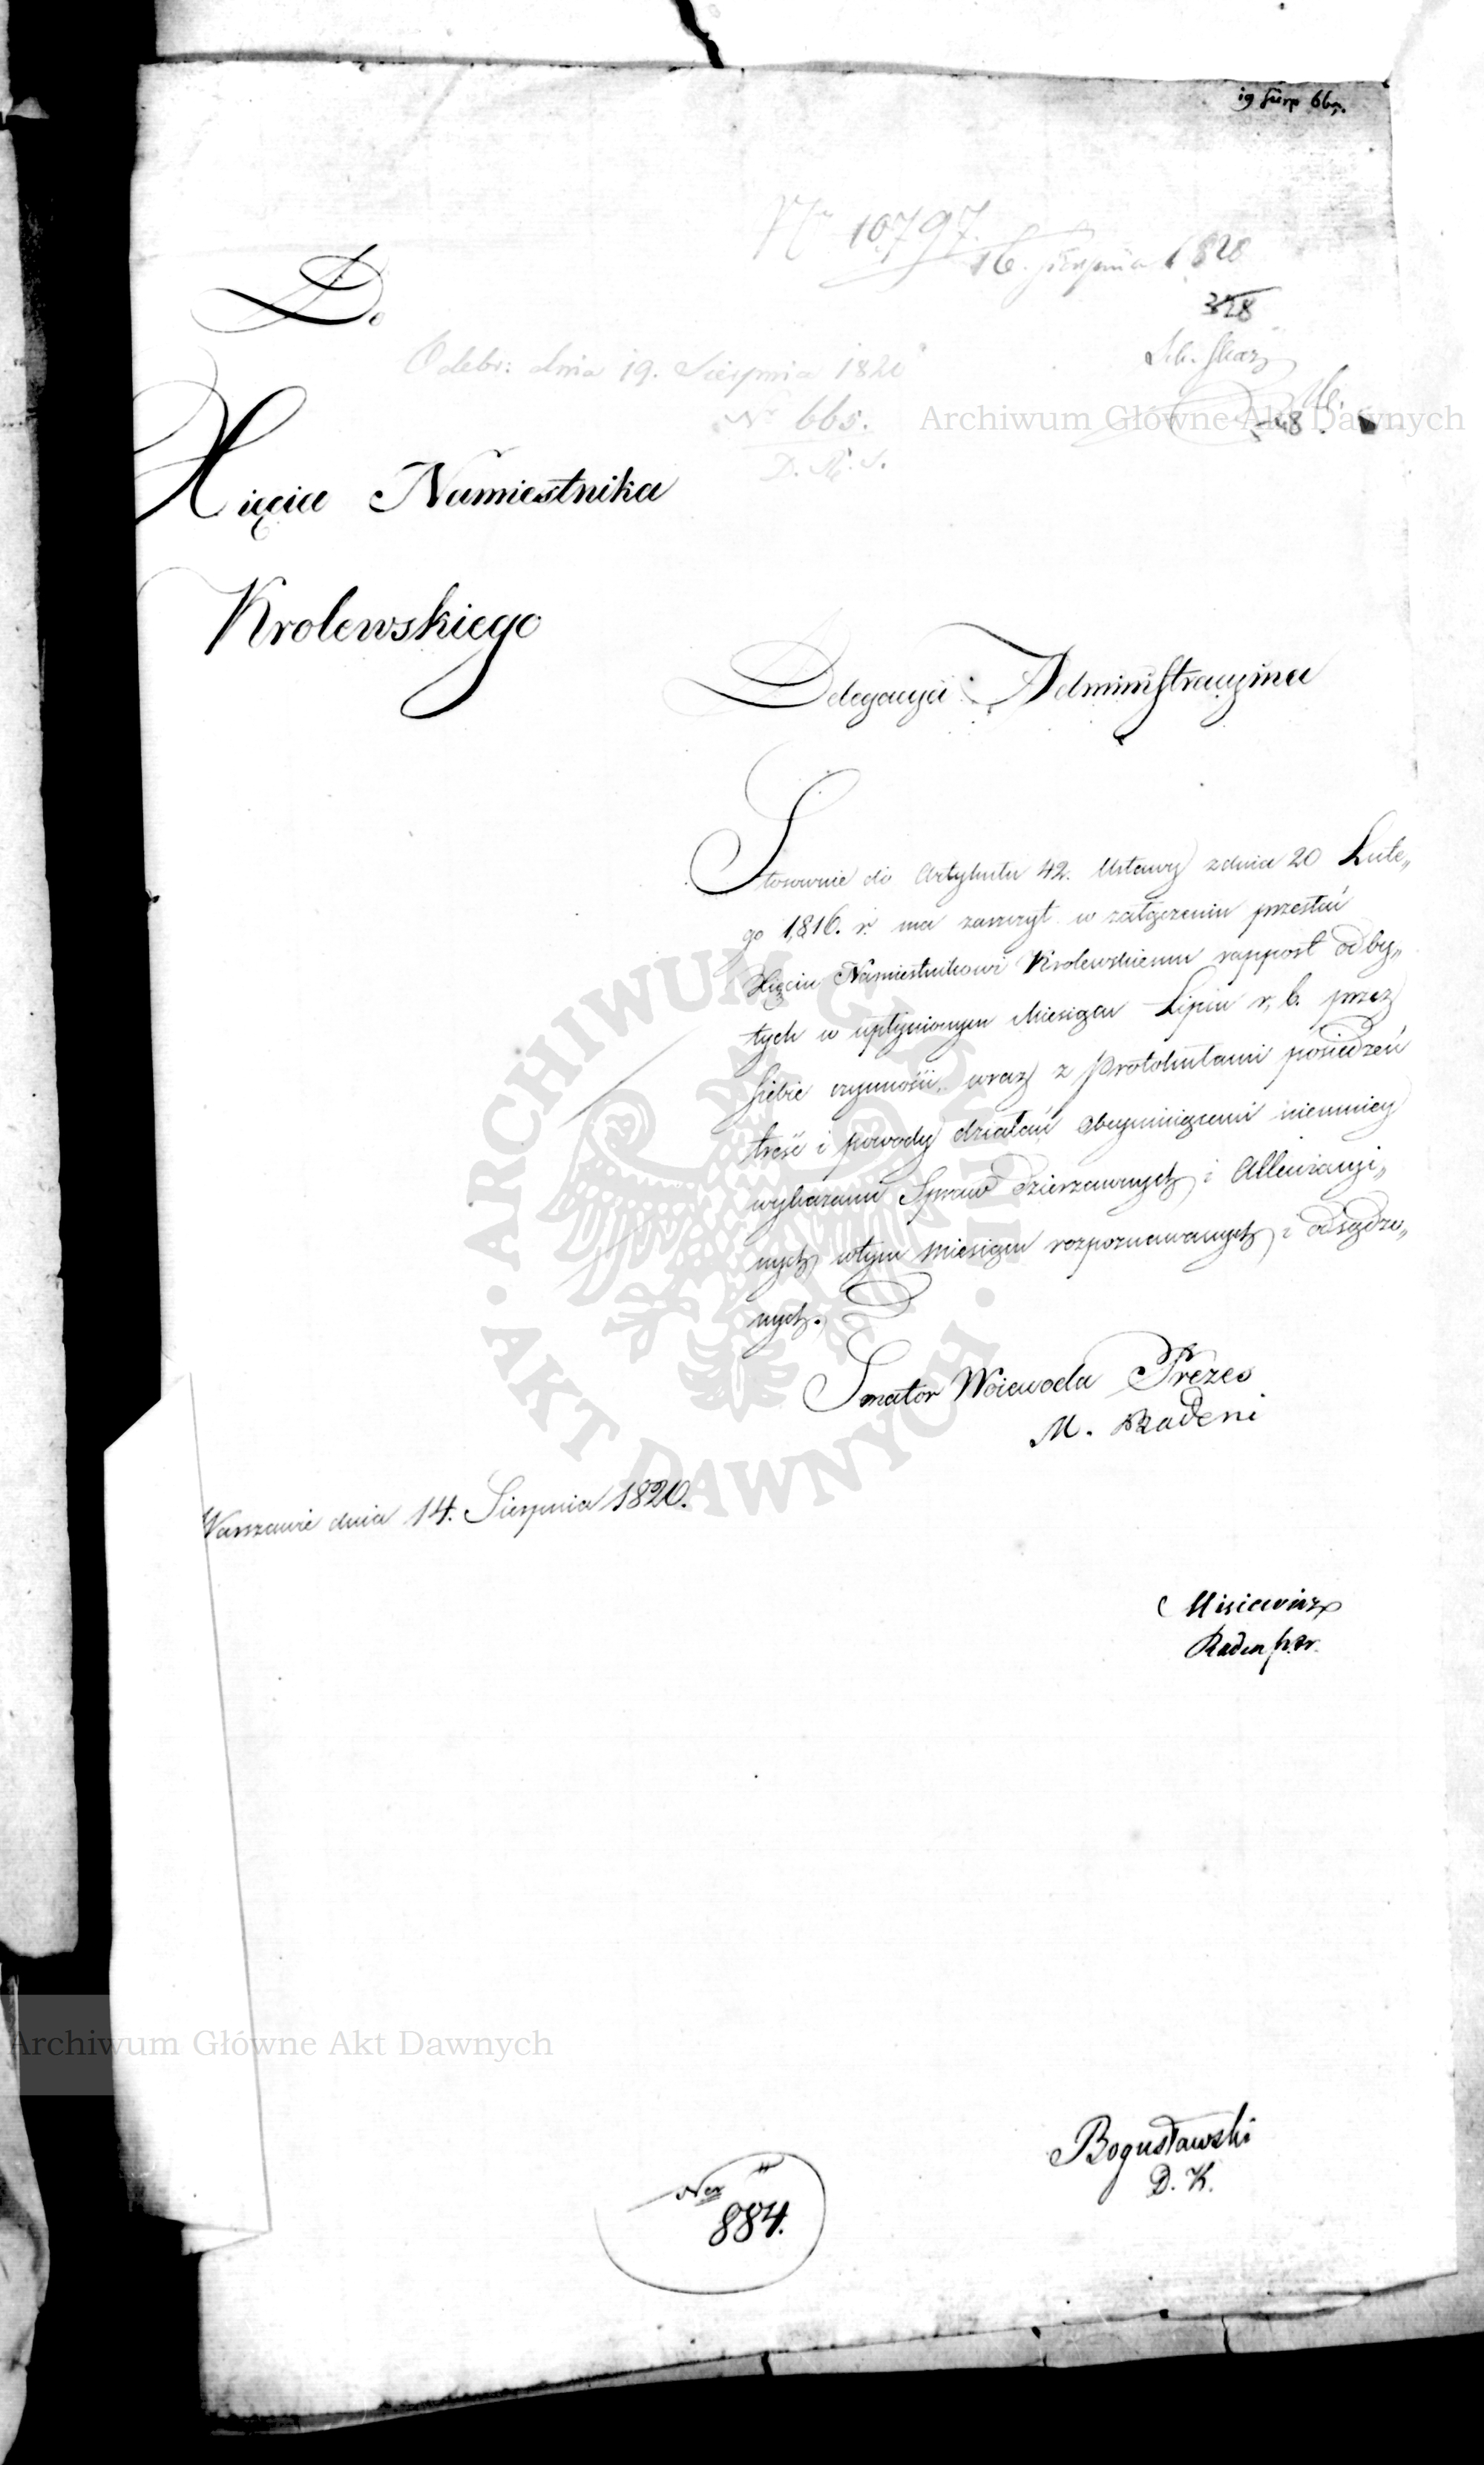 19 Sierp 665.
Nr 10,797.
16. Sierpnia 1820
328
Do
Odebr: dnia 19. Sierpnia 1820
Nr 665.
Archiwum Główne Akt Dawnych
Xięcia Namiestnika
Krolewskiego
Delegacya Administracyina
Stosownie do Artykułu 42. Ustawy z dnia 20 Lute„
go 1,816. r. ma zaszczyt w załączeniu przesłać
Xięciu Namiestnikowi Krolewskiemu rapport odby„
tych w upłynionym Miesiącu Lipcu r, b. przez
siebie czynności, wraz z Protokułami posiedzeń
treść i powody działań obeymuiącemi niemniey
wykazami Spraw dzierzawnych i Allewiacyi„
nych wtym Miesiącu rozpoznawanych i odsądzo„
nych.
Senator Woiewoda Prezes
M. Badeni
Warszawie dnia 14. Sierpnia 1820.
Misiewicz
Archiwum Główne Akt Dawnych
Bogusławski
D. K.
Ner
884.
ARCHIWUM GŁÓWNE · AKT DAWNYCH ·